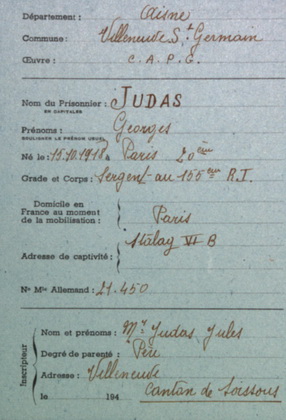 Département : Aisne
Commune : Villeneuve St Germain
Œuvre : C. A. P. G.
Nom du Prisonnier : JUDAS
EN CAPITALES
Prénoms : Georges
SOULIGNER LE PRÉNOM USUEL
Né le : 15.10.1918 à Paris 20ème
Grade et Corps : Sergent au 155ème R.I.
Domicile en
France au moment
de la mobilisation : Paris
Stalag VI B
Adresse de captivité :
No Mle Allemand : 21.450
Inscripteur
Nom et prénoms : Mr Judas Jules
Degré de parenté : Père
Adresse : Villeneuve
le 194 Canton de Soissons